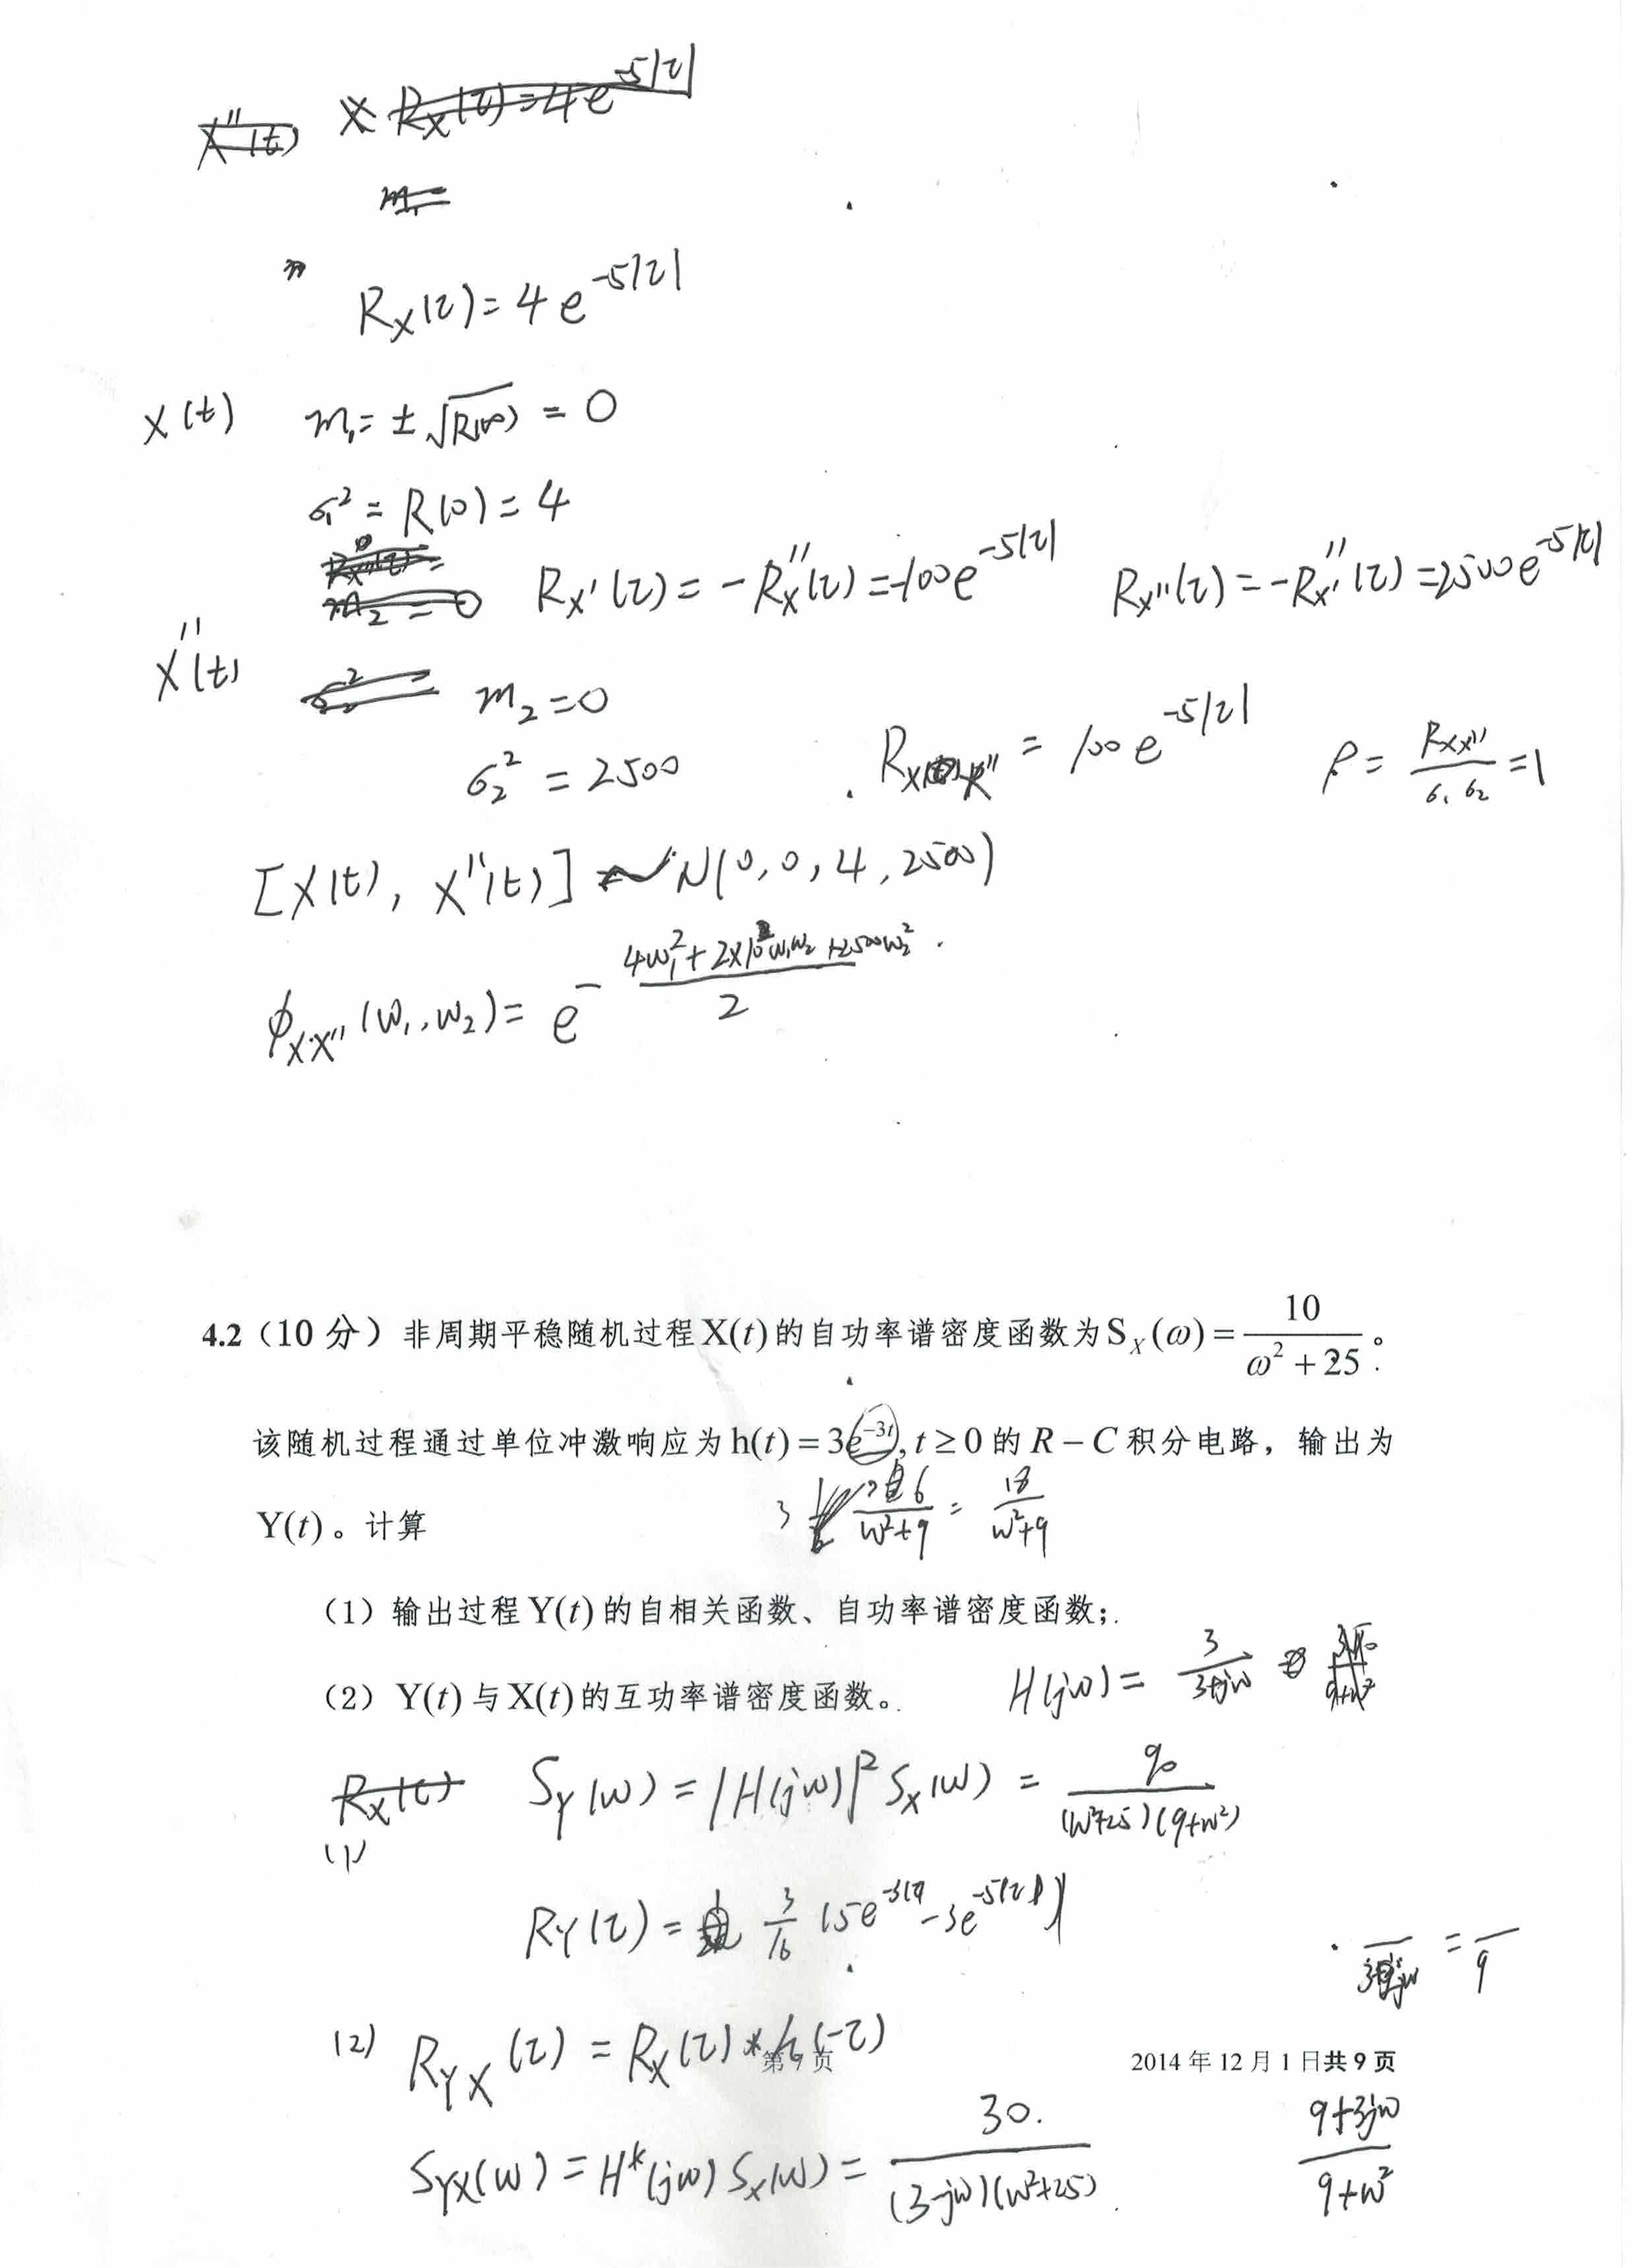 X''(t) X R_X(τ)=4e^{-5|τ|}
m_1=
R_X(τ)=4e^{-5|τ|}
X(t) m_1=±√R(∞)=0
σ_1^2=R(0)=4
R_X'(τ)=-R_X''(τ)=-100e^{-5|τ|} R_X''(τ)=-R_X'''(τ)=2500e^{-5|τ|}
m_2=0
X''(t) m_2=0
σ_2^2=2500 R_{XX''}=100e^{-5|τ|} ρ=R_{XX''}/σ_1σ_2=1
[X(t), X''(t)]~N(0,0,4,2500)
φ_{XX''}(ω_1,ω_2)=e^{-(4ω_1^2+2×10^2ω_1ω_2+2500ω_2^2)/2}
4.2（10 分）非周期平稳随机过程X(t)的自功率谱密度函数为S_X(ω)=10/(ω^2+25)。
该随机过程通过单位冲激响应为h(t)=3e^{-3t}, t≥0的R-C积分电路，输出为
Y(t)。计算
3 6/(ω^2+9)=18/(ω^2+9)
（1）输出过程Y(t)的自相关函数、自功率谱密度函数;
（2）Y(t)与X(t)的互功率谱密度函数。
H(jω)=3/(3+jω)
R_X(τ) S_Y(ω)=|H(jω)|^2 S_X(ω)=90/((ω^2+25)(9+ω^2))
(1)
R_Y(τ)=3/16(5e^{-3|τ|}-3e^{-5|τ|})
(2) R_{YX}(τ)=R_X(τ)*h(-τ)
第 7 页 2014年12月1日共9页
S_{YX}(ω)=H*(jω)S_X(ω)=30/((3-jω)(ω^2+25))
(9+3jω)/(9+ω^2)